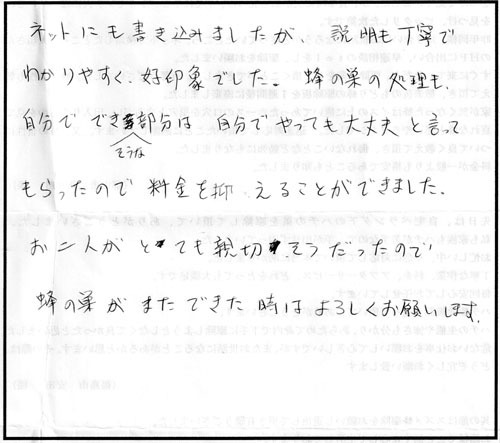 ネットにも書き込みましたが、説明も丁寧で
わかりやすく、好印象でした。蜂の巣の処理も、
自分でできそうな部分は、自分でやっても大丈夫と言って
もらったので料金を抑えることができました。
お二人がとても親切そうだったので
蜂の巣がまたできた時はよろしくお願いします。